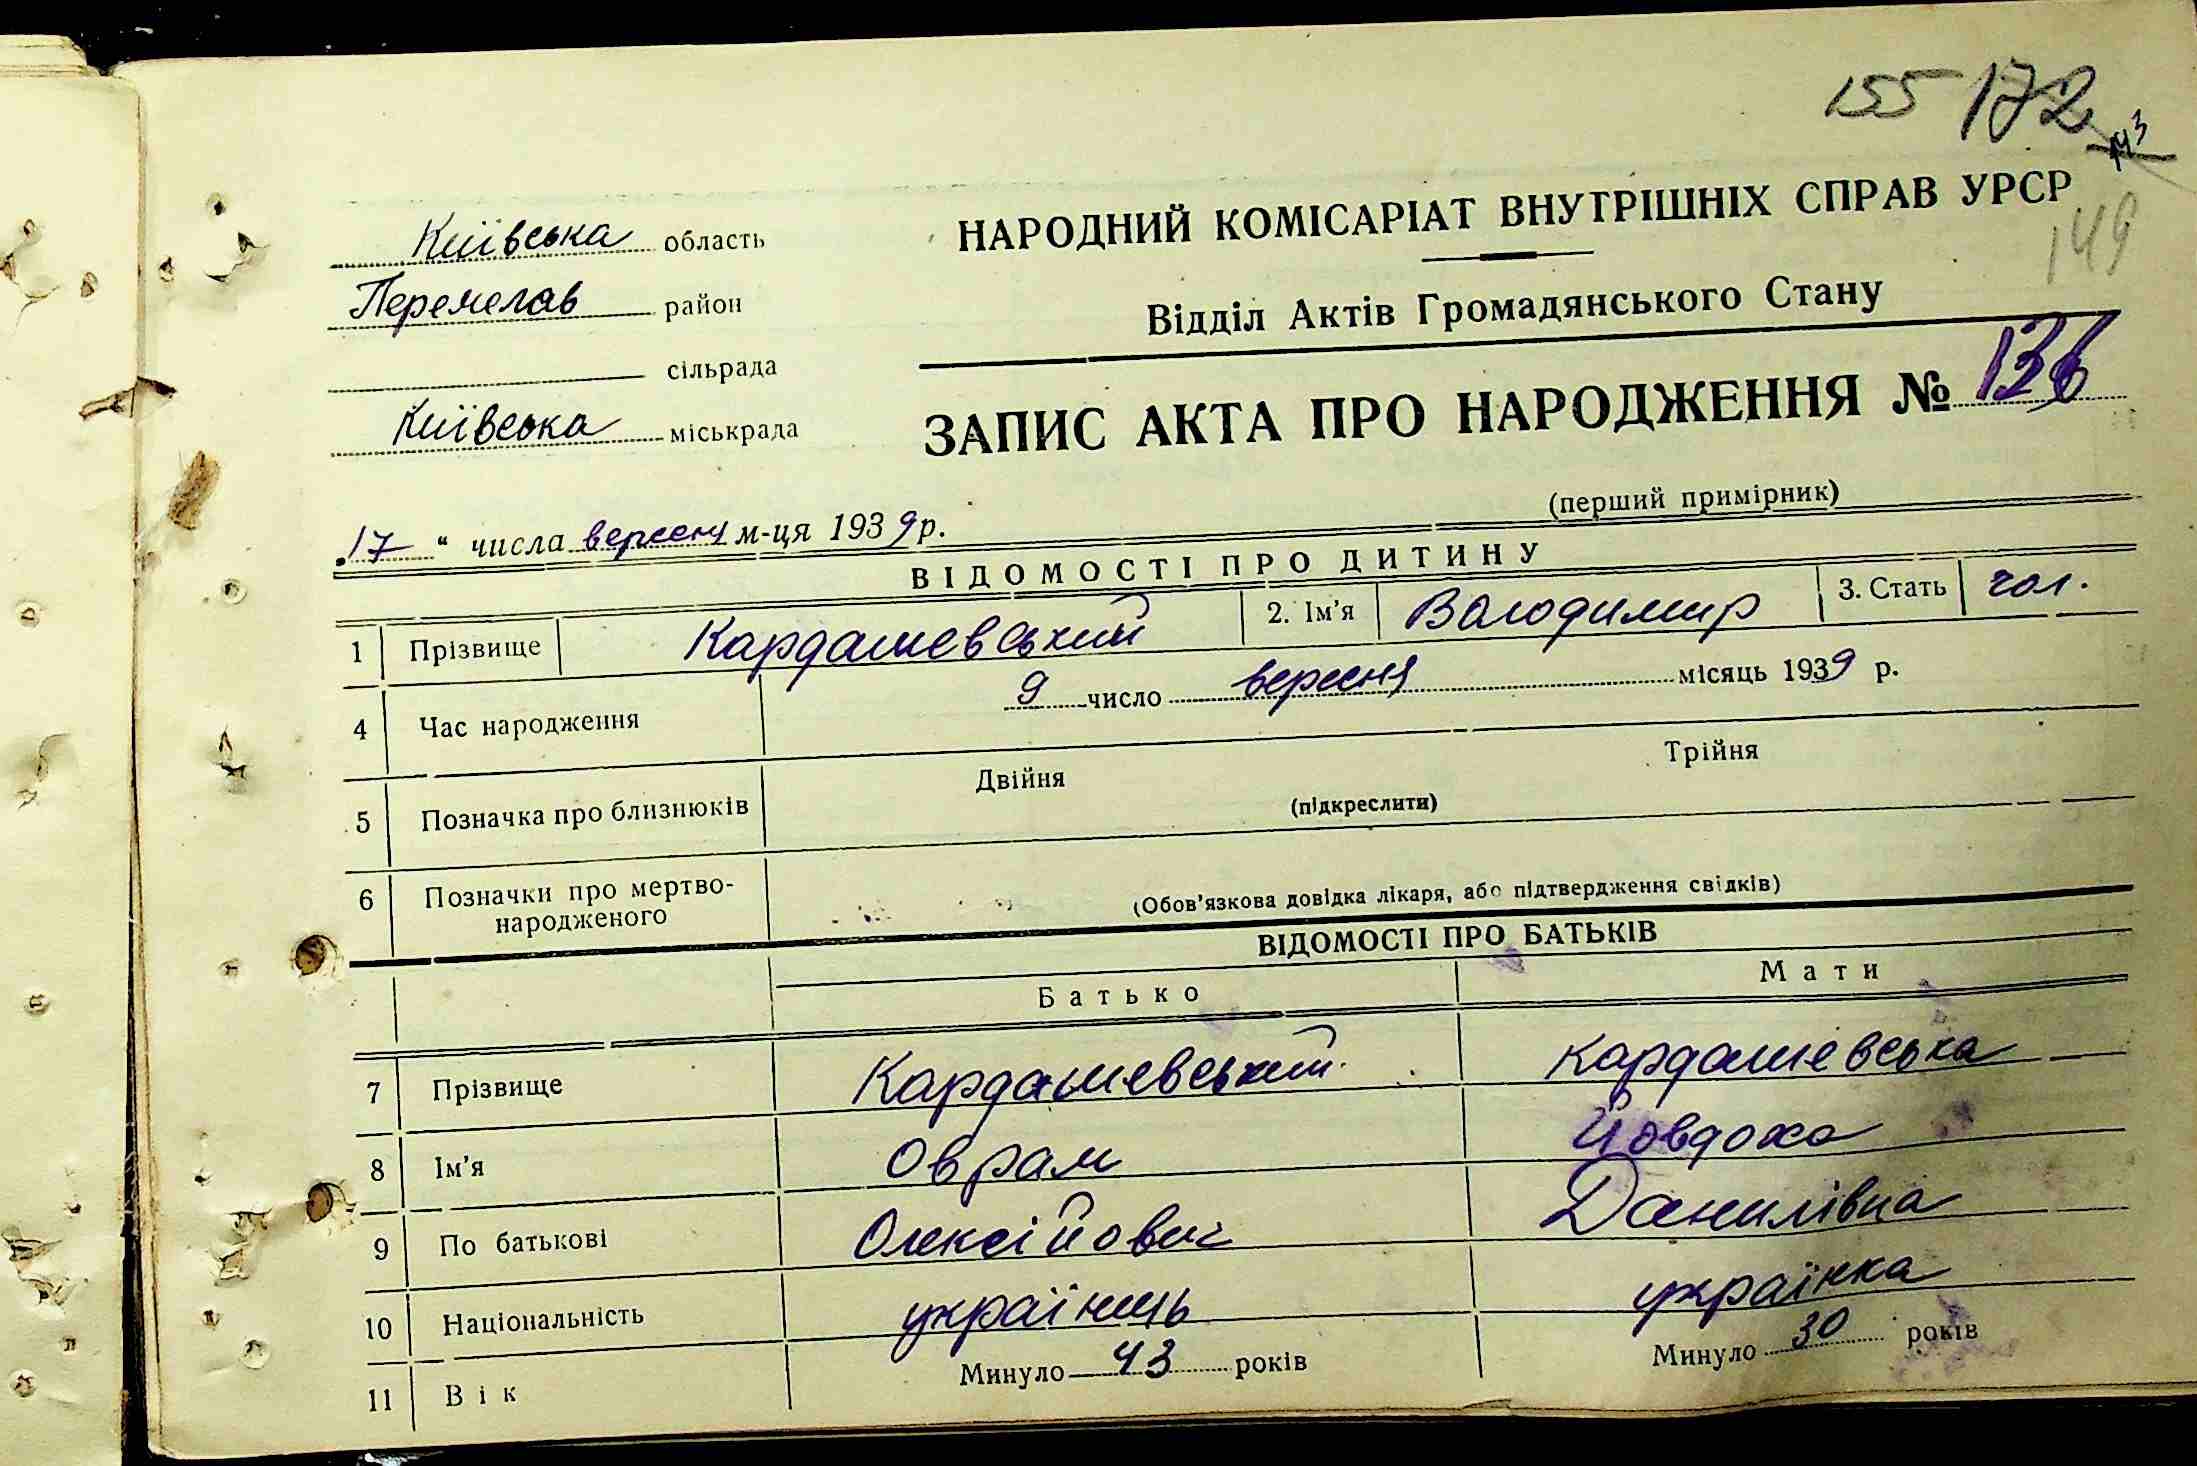 155 172
143
149
Київська область
Переяслав район
сільрада
Київська міськрада
НАРОДНИЙ КОМІСАРІАТ ВНУТРІШНІХ СПРАВ УРСР
Відділ Актів Громадянського Стану
ЗАПИС АКТА ПРО НАРОДЖЕННЯ №
(перший примірник)
17 " числа вересня м-ця 1939 р.
ВІДОМОСТІ ПРО ДИТИНУ
1 Прізвище Кардашевський 2. Ім'я Володимир 3. Стать чол.
4 Час народження 9 число вересня місяць 1939 р.
5 Позначка про близнюків Двійня Трійня
(підкреслити)
6 Позначки про мертво-
народженого
(Обов'язкова довідка лікаря, або підтвердження свідків)
ВІДОМОСТІ ПРО БАТЬКІВ
Батько Мати
7 Прізвище Кардашевський Кардашевська
8 Ім'я Оврам Йовдоха
9 По батькові Олексійович Данилівна
10 Національність українець українка
11 Вік Минуло 43 років Минуло 30 років